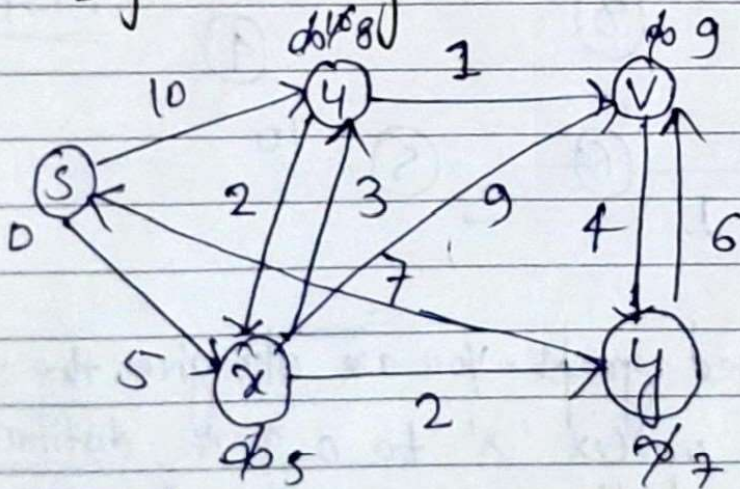 ∞ 10 8
∞ 9
10
1
u
v
s
0
2
3
9
4
6
7
5
x
2
y
∞ 5
∞ 7